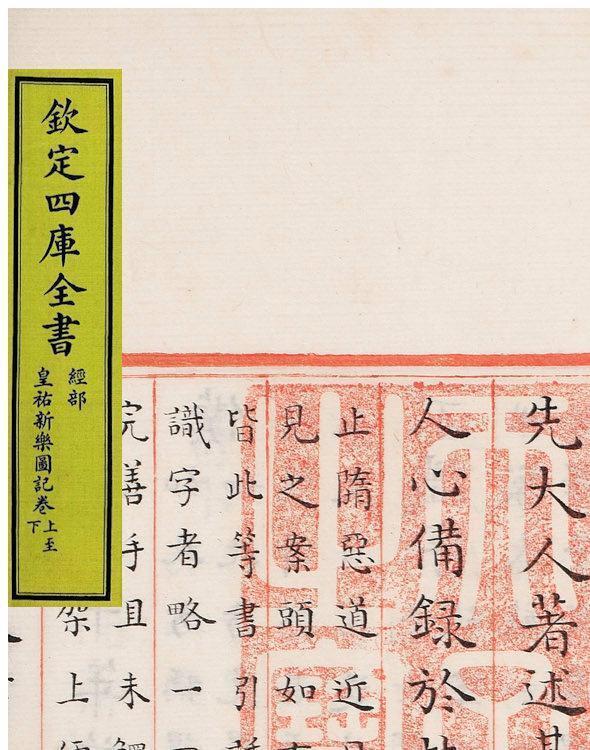 欽定四庫全書
經部
皇祐新樂圖記卷上至下
先大人著述
人心備錄於
止隋惡道近
見之案頭如
皆此等書引
識字者略一
完善手且未
架上